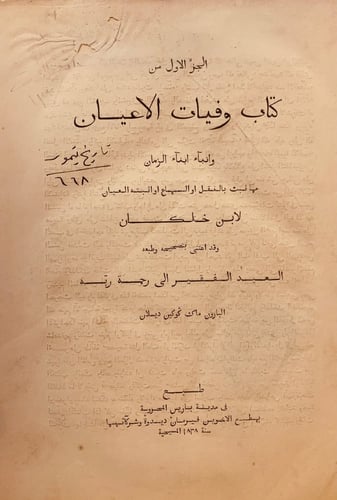 الجزء الاول من
كتاب وفيات الاعيان
وانباء ابناء الزمان
مما ثبت بالنقل او السماع او اثبته العيان
لابن خلكان
وقد اعتنى بتصحيحه وطبعه
العبد الفقير الى رحمة ربه
البارون ماك كوكين ديسلان
تاريخ تيمور
٦٦٨
طبع
فى مدينة باريس المحروسة
بمطبع الاخوين فيرمان ديدوة وشركائهما
سنة ١٨٣٨ المسيحية